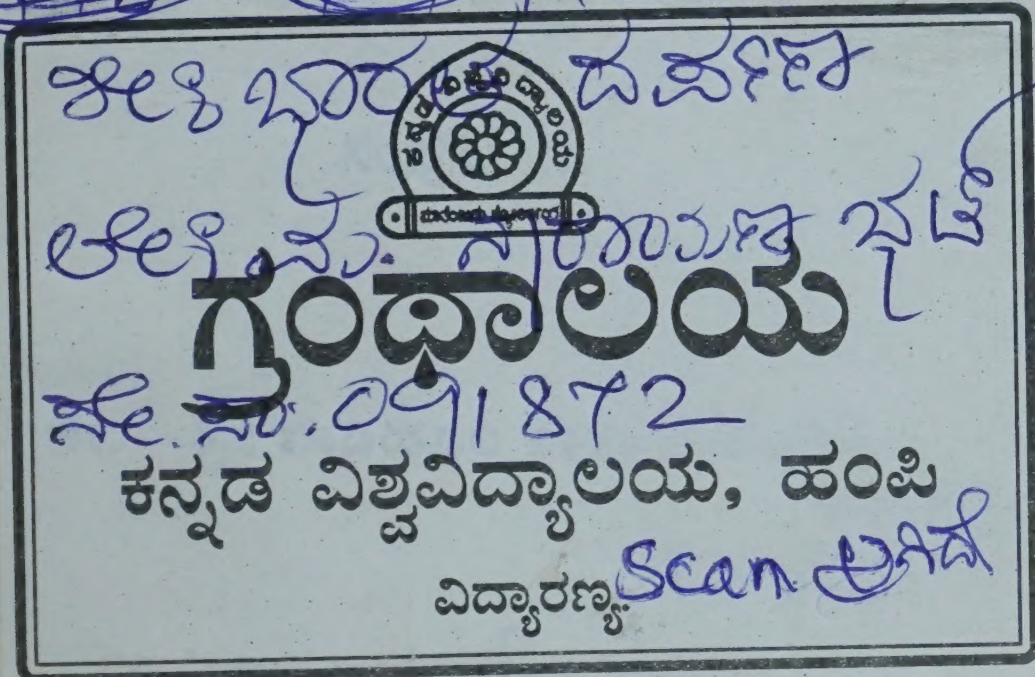 ಶೀ೯ ಭಾರತ ದರ್ಪಣ
ಕನ್ನಡ ವಿಶ್ವವಿದ್ಯಾಲಯ
ಲೇ॥ ಮ. ನಾರಾಯಣ ಭಟ್
ಗ್ರಂಥಾಲಯ
ಸೇ. ಸಂ. 091872
ಕನ್ನಡ ವಿಶ್ವವಿದ್ಯಾಲಯ, ಹಂಪಿ
ವಿದ್ಯಾರಣ್ಯ.
Scan ಆಗಿದೆ